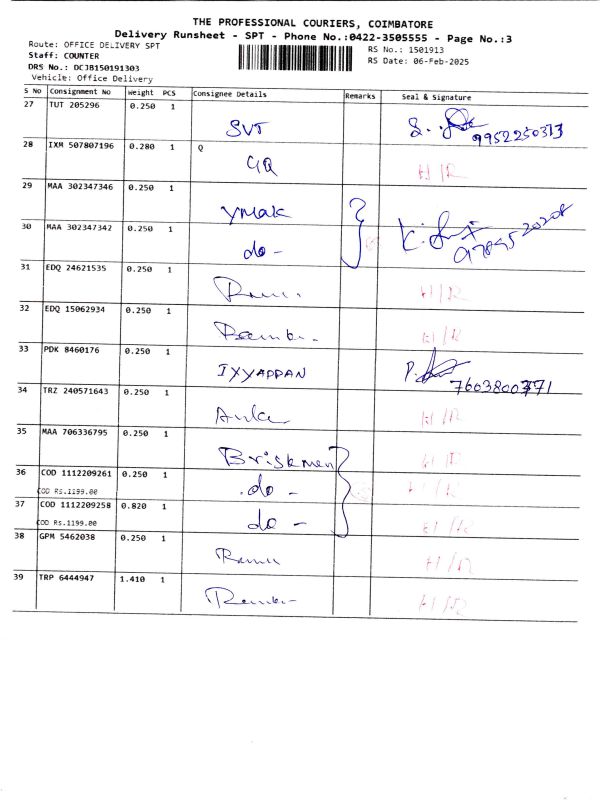 THE PROFESSIONAL COURIERS, COIMBATORE
Delivery Runsheet - SPT - Phone No.:0422-3505555 - Page No.:3
Route: OFFICE DELIVERY SPT
RS No.: 1501913
Staff: COUNTER
RS Date: 06-Feb-2025
DRS No.: DCJB150191303
Vehicle: Office Delivery
S No Consignment No Weight PCS Consignee Details Remarks Seal & Signature
27 TUT 205296 0.250 1
SVT 9952250313
28 IXM 507807196 0.280 1 Q
GQ H/R
29 MAA 302347346 0.250 1
ymak
30 MAA 302347342 0.250 1
do -
31 EDQ 24621535 0.250 1
H/R
32 EDQ 15062934 0.250 1
H/R
33 PDK 8460176 0.250 1
IYYAPPAN 7603800371
34 TRZ 240571643 0.250 1
H/R
35 MAA 706336795 0.250 1
Briskmen H/R
36 COD 1112209261 0.250 1
COD Rs.1199.00 do - H/R
37 COD 1112209258 0.820 1
COD Rs.1199.00 do - H/R
38 GPM 5462038 0.250 1
H/R
39 TRP 6444947 1.410 1
H/R